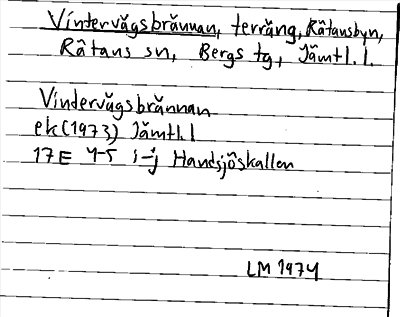 Vintervägsbrännan, terräng, Råtansbyn,
Råtans sn, Bergs tg, Jämtl. l.
Vindervägsbrännan
ek (1973) Jämtl. l
17E 4-5 i-j Handsjöskallen
LM 1974